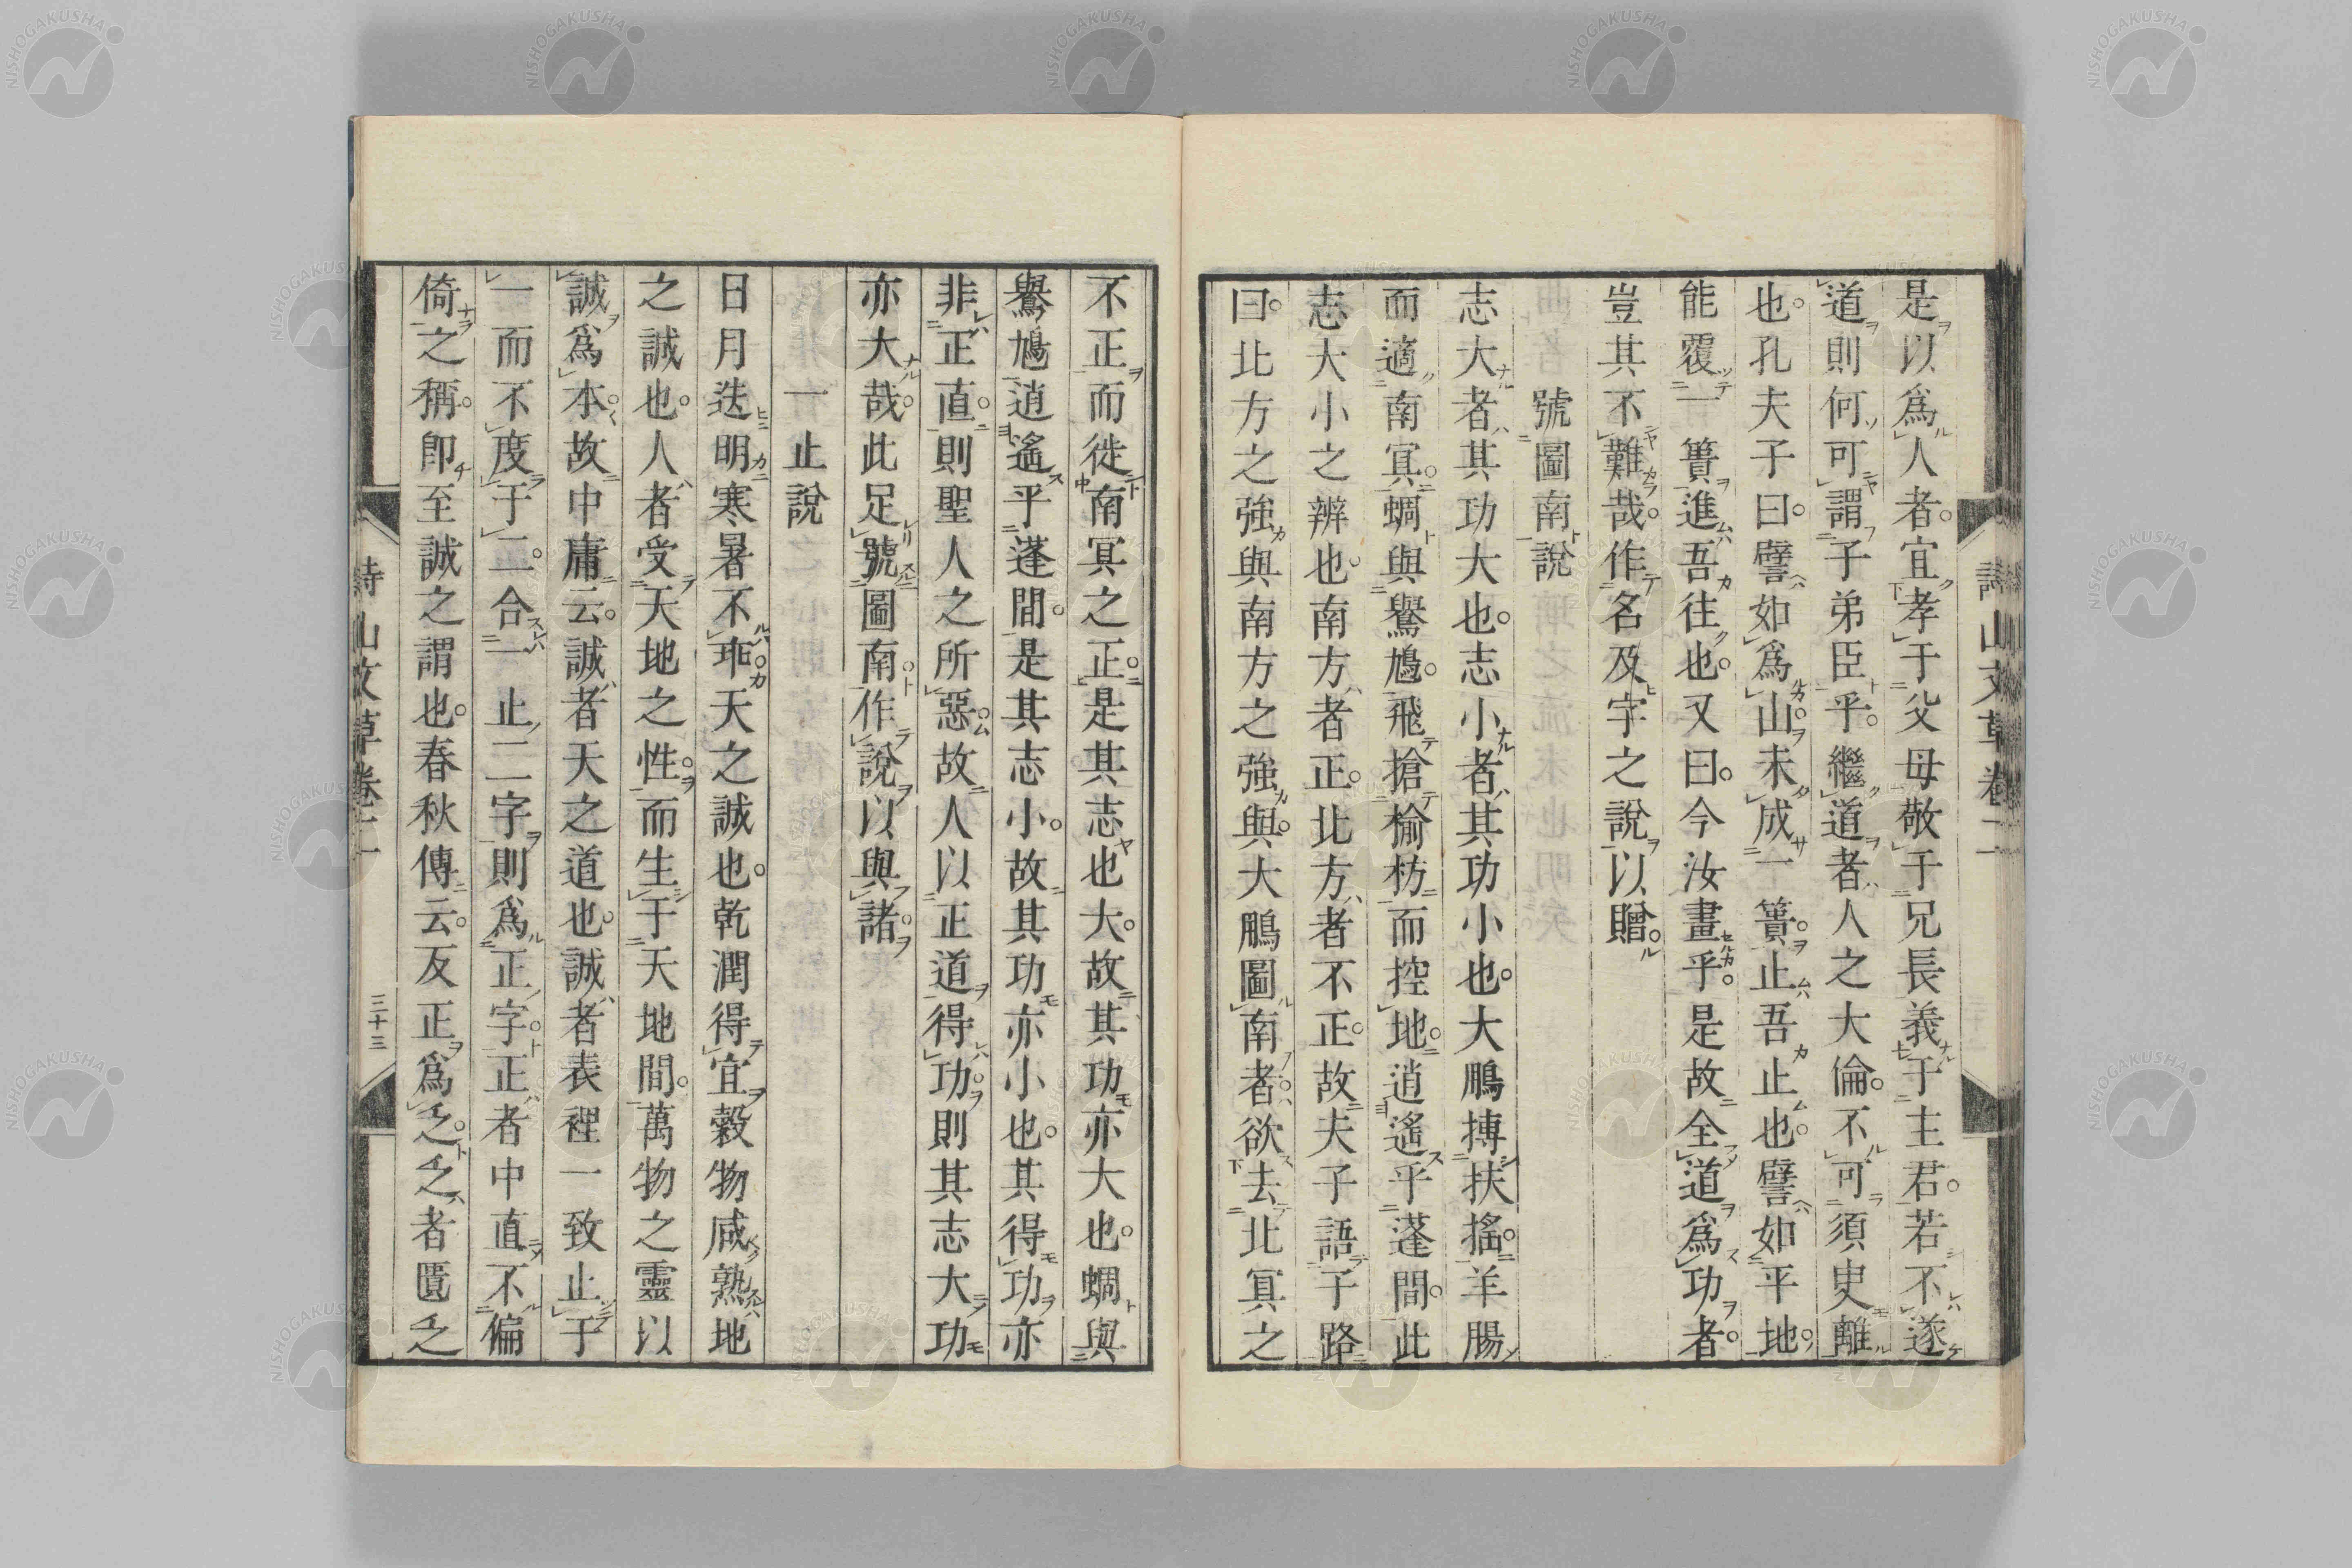 詩山文草卷二
是以爲人者。宜孝于父母敬于兄長義于主君。若不遂
道則何可謂子弟臣乎。繼道者人之大倫。不可須史離
也。孔夫子曰。譬如爲山。未成一簣。止吾止也。譬如平地。
能覆一簣進吾往也。又曰。今汝畫乎。是故全道爲功者。
豈其不難哉。作名及字之說以贈。
號圖南說
志大者其功大也。志小者其功小也。大鵬搏扶搖。羊腸
而適南冥。蜩與鷽鳩。飛搶楡枋而控地。逍遙乎蓬間。此
志大小之辨也。南方者正。北方者不正。故夫子語子路
曰。北方之強與南方之強與。大鵬圖南者。欲去北冥之
不正而徙南冥之正。是其志也大。故其功亦大也。蜩與
鷽鳩逍遙乎蓬間。是其志小。故其功亦小也。其得功亦
非正直。則聖人之所惡。故人以正道得功。則其志大功
亦大哉。此足號圖南。作說以與諸。
一止說
日月迭明寒暑不乖。天之誠也。乾潤得宜穀物咸熟地
之誠也。人者受天地之性。而生于天地間。萬物之靈以
誠爲本。故中庸云。誠者天之道也。誠者表裡一致止于
一而不度于二。合一止二字則爲正字。正者中直不偏
倚之稱。卽至誠之謂也。春秋傳云。反正爲乏。乏者匱乏
詩山文草卷二
三十三
NISHOGAKUSHA